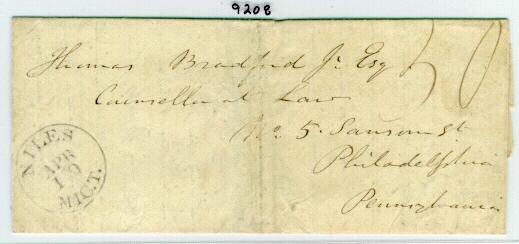 9208
Thomas Bradford Jr. Esq
50
Counsellor at Law
No 5. Sansom St
Philadelphia
Pennsylvania
NILES
APR
19
MICT.